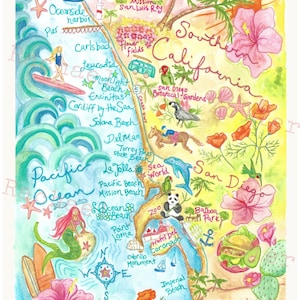 Oceanside
harbor
Mission
San Luis Rey
Carlsbad
flower
fields
Southern
California
Leucadia
Moonlight
Beach
Encinitas
San Diego
Botanical Gardens
Cardiff by the Sea
Solana Beach
Del Mar
Torrey
Pines
Beach
La Jolla
Sea
World
San Diego
Pacific
Ocean
Pacific Beach
Mission Beach
Ocean
Beach
Zoo
Balboa
Park
Point
Loma
Hotel Del
Coronado
Cabrillo
Monument
Imperial
Beach